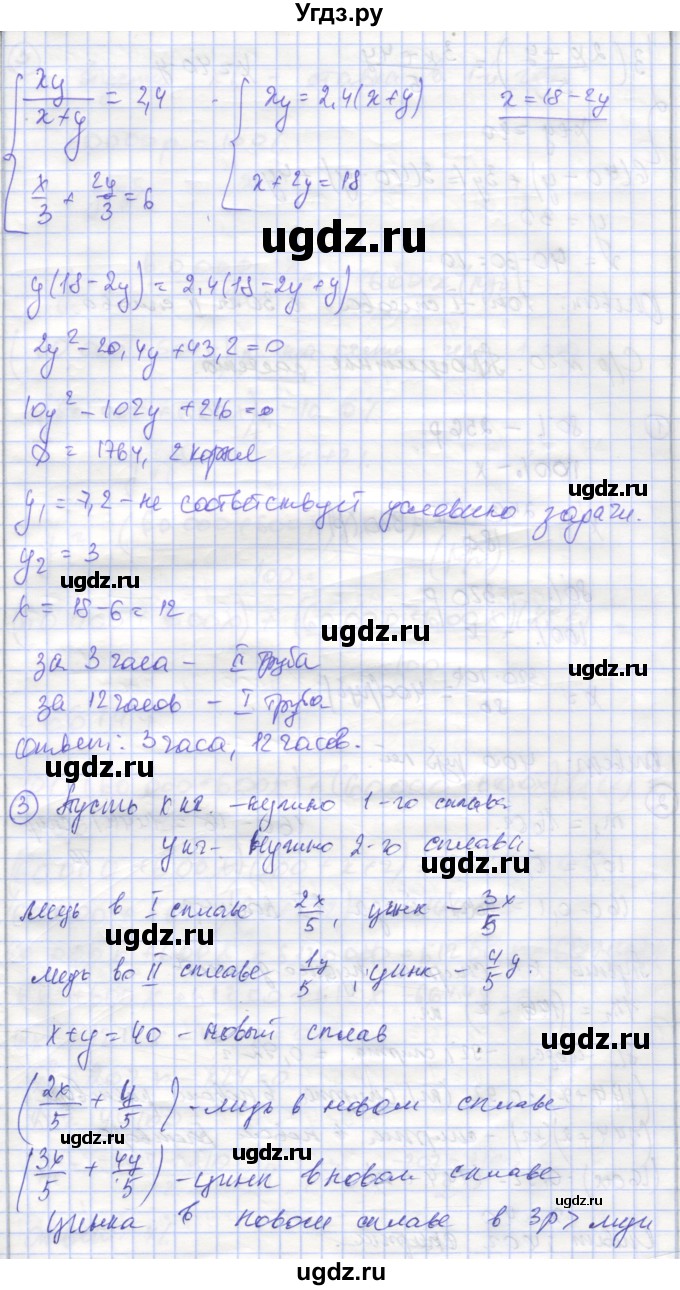 Угдз.ру
xy/(x+y) = 2,4    xy = 2,4(x+y)    x = 18 - 2y
x/3 + 2y/3 = 6    x + 2y = 18
ugdz.ru
y(18 - 2y) = 2,4(18 - 2y + y)
2y² - 20,4y + 43,2 = 0
10y² - 102y + 216 = 0
D = 1764, 2 корня
ugdz.ru
y₁ = 7,2 - не соответствует условию задачи.
y₂ = 3
ugdz.ru
x = 18 - 6 = 12
ugdz.ru
за 3 часа - II труба
ugdz.ru
за 12 часов - I труба
Ответ: 3 часа, 12 часов.
ugdz.ru
③ Пусть x кг. - нужно 1-го сплава
y кг - нужно 2-го сплава.
ugdz.ru
медь в I сплаве 2x/5, цинк - 3/5 x
ugdz.ru
медь во II сплаве 1y/5, цинк - 4/5 y.
x + y = 40 - новый сплав
ugdz.ru
(2x/5 + y/5) - медь в новом сплаве
ugdz.ru
(3x/5 + 4y/5) - цинк в новом сплаве
ugdz.ru
цинка в новом сплаве в 3р > меди
ugdz.ru